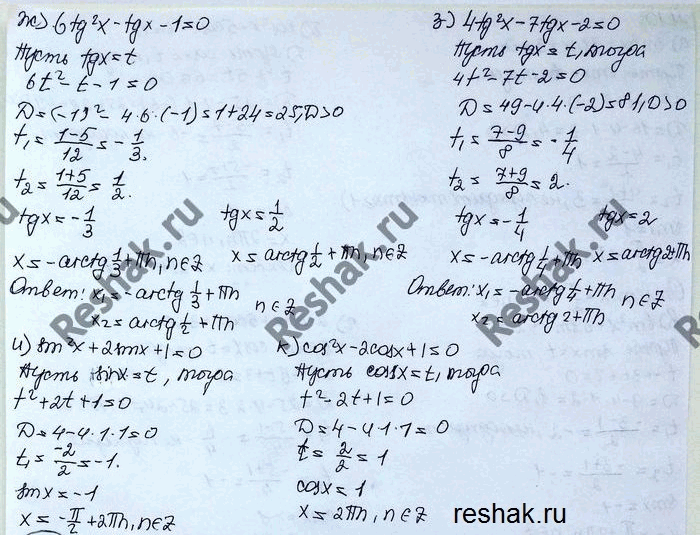 ж) 6tg²x - tgx - 1 = 0
Пусть tgx = t
6t² - t - 1 = 0
D = (-1)² - 4·6·(-1) = 1 + 24 = 25, D > 0
t₁ = (1-5)/12 = -1/3.
t₂ = (1+5)/12 = 1/2.
tgx = -1/3   tgx = 1/2
x = -arctg 1/3 + πn, n∈Z   x = arctg 1/2 + πn, n∈Z
Ответ: x₁ = -arctg 1/3 + πn   n∈Z
x₂ = arctg 1/2 + πn
з) 4tg²x - 7tgx - 2 = 0
Пусть tgx = t, тогда
4t² - 7t - 2 = 0
D = 49 - 4·4·(-2) = 81, D > 0
t₁ = (7-9)/8 = -1/4
t₂ = (7+9)/8 = 2.
tgx = -1/4   tgx = 2
x = -arctg 1/4 + πn   x = arctg 2 + πn
Ответ: x₁ = -arctg 1/4 + πn   n∈Z
x₂ = arctg 2 + πn
и) sin²x + 2sinx + 1 = 0
Пусть sinx = t, тогда
t² + 2t + 1 = 0
D = 4 - 4·1·1 = 0
t₁ = -2/2 = -1.
sinx = -1
x = -π/2 + 2πn, n∈Z
к) cos²x - 2cosx + 1 = 0
Пусть cosx = t, тогда
t² - 2t + 1 = 0
D = 4 - 4·1·1 = 0
t = 2/2 = 1
cosx = 1
x = 2πn, n∈Z
Reshak.ru
Reshak.ru
Reshak.ru
reshak.ru